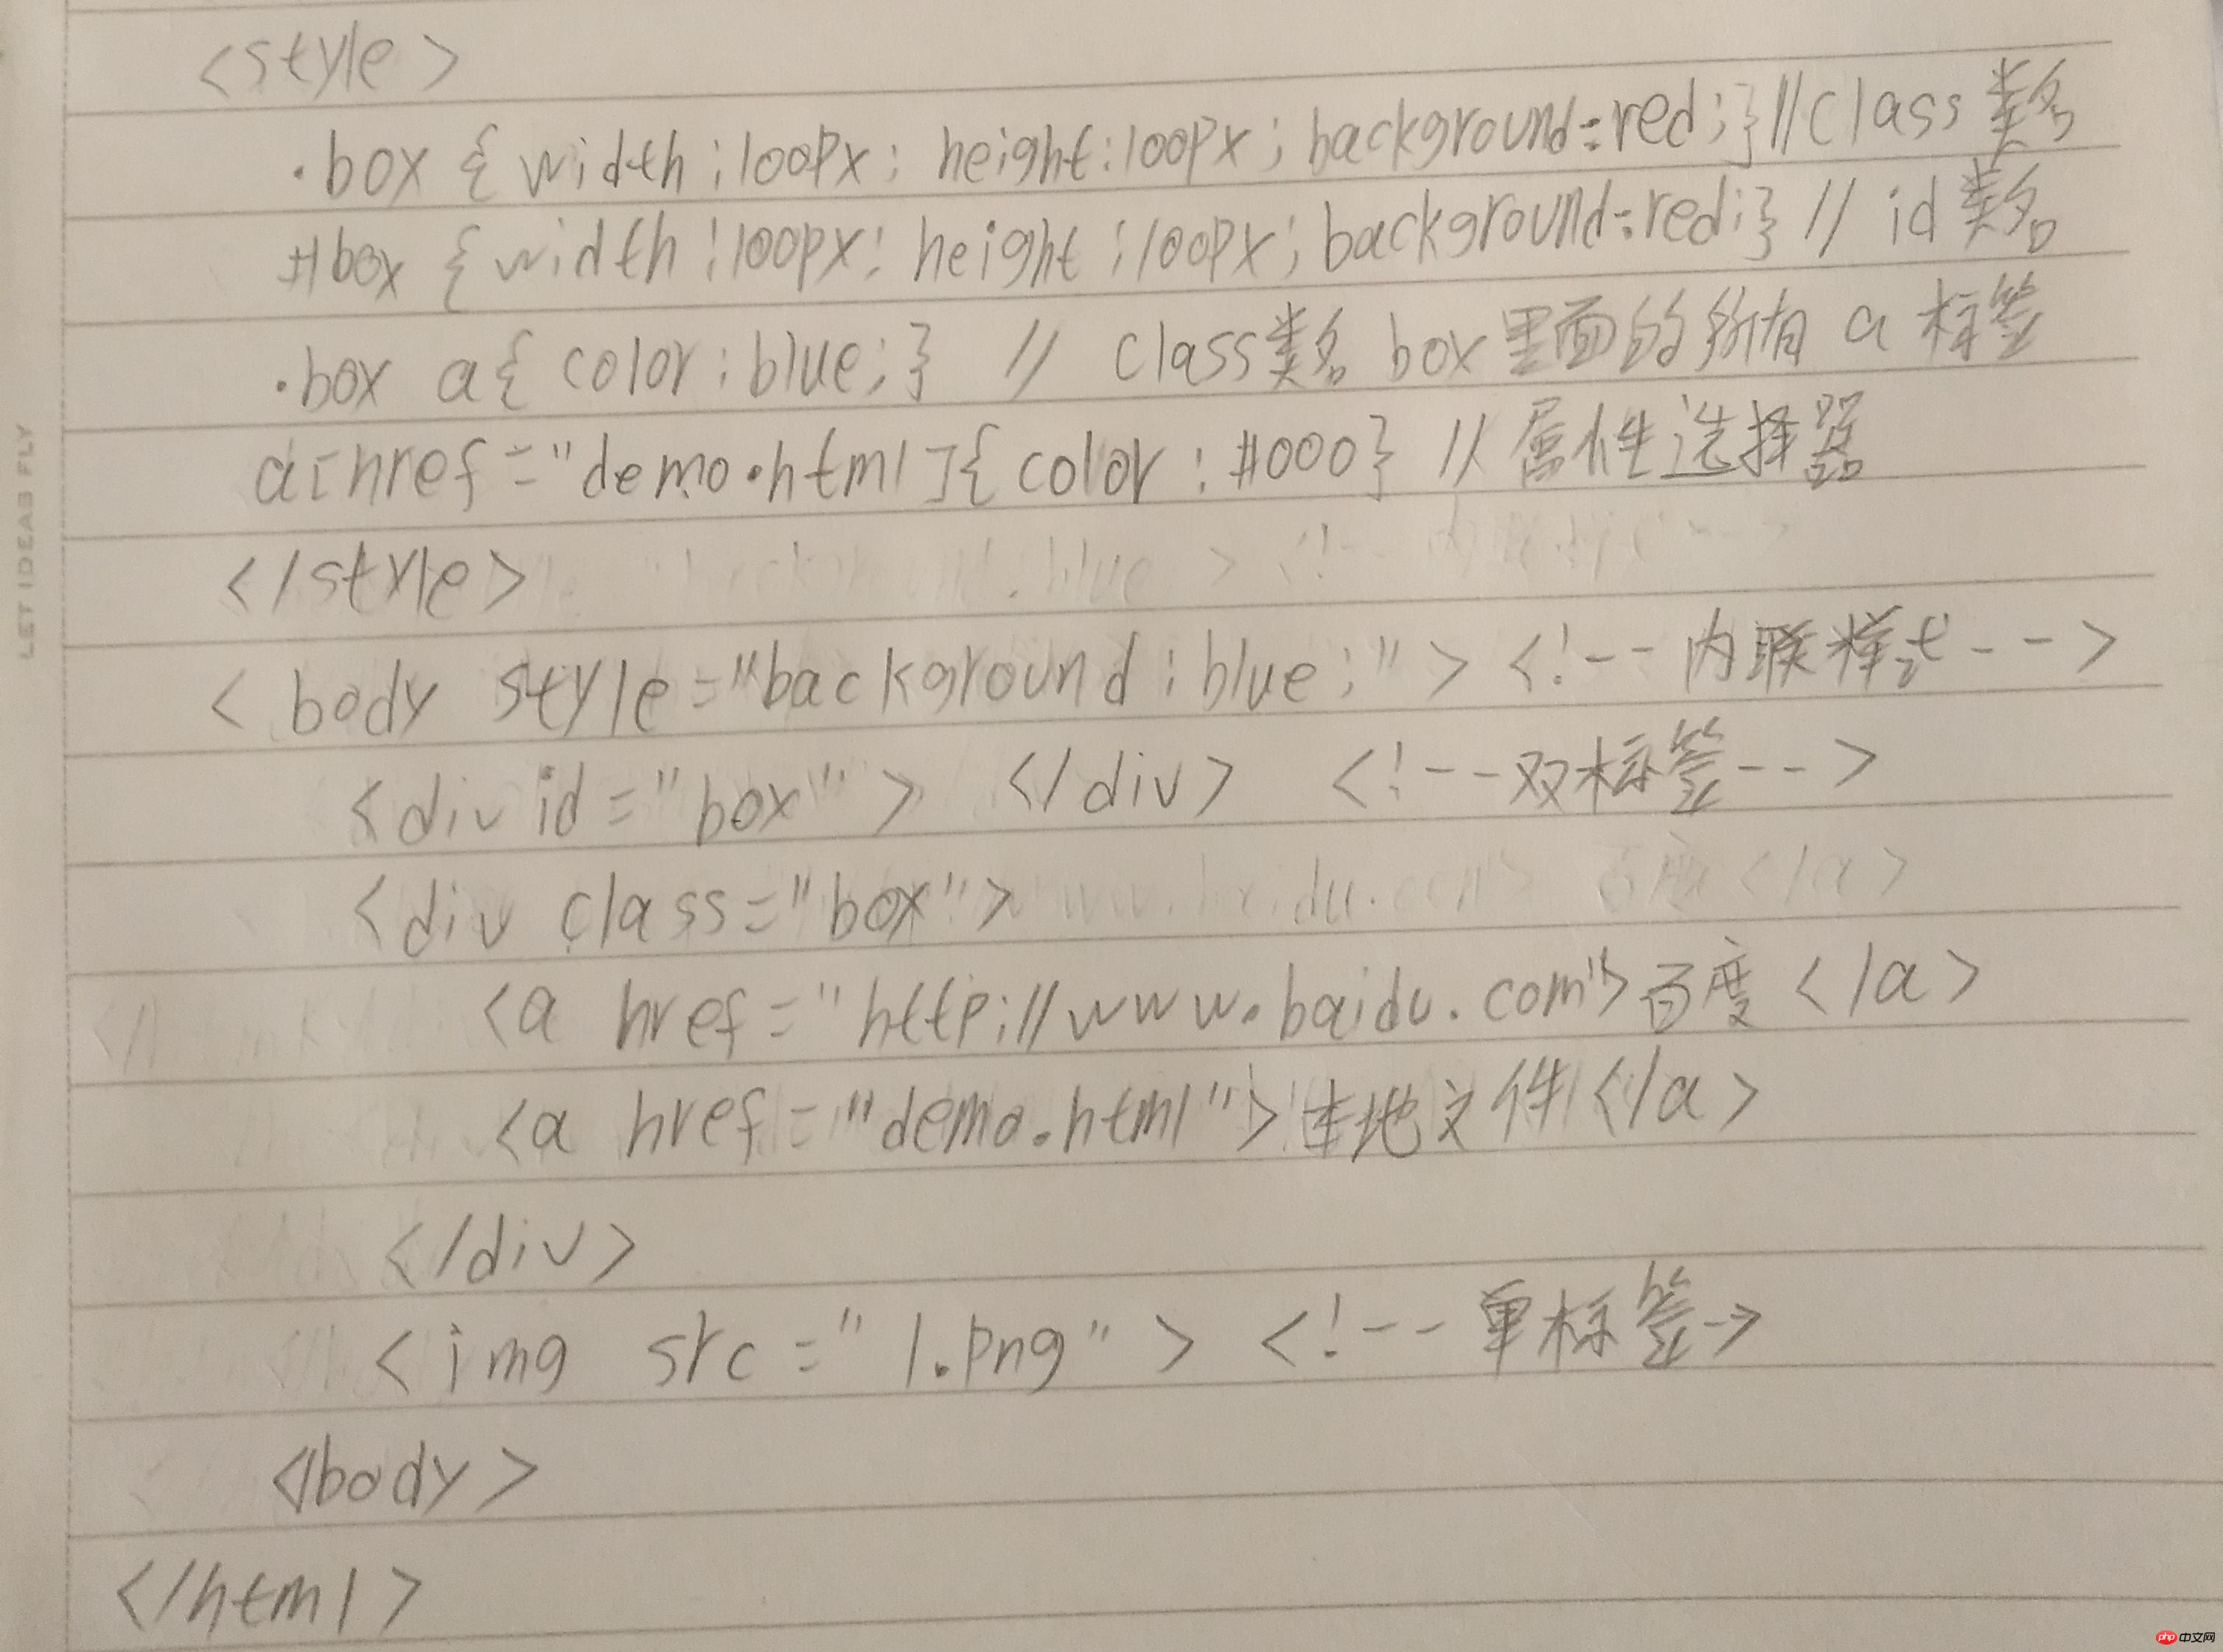 <style>
.box {width:100px; height:100px; background:red;}//class 类名
#box {width:100px; height:100px; background:red;} // id 类名
.box a{color:blue;} // class类名 box里面的所有 a 标签
a[href="demo.html]{color:#000} //属性选择器
</style>
<body style="background:blue;"> <!--内联样式-->
<div id="box"> </div> <!--双标签-->
<div class="box">
<a href="http://www.baidu.com">百度</a>
<a href="demo.html">本地文件</a>
</div>
<img src="1.png"> <!--单标签->
</body>
</html>
LET IDEAS FLY
php中文网